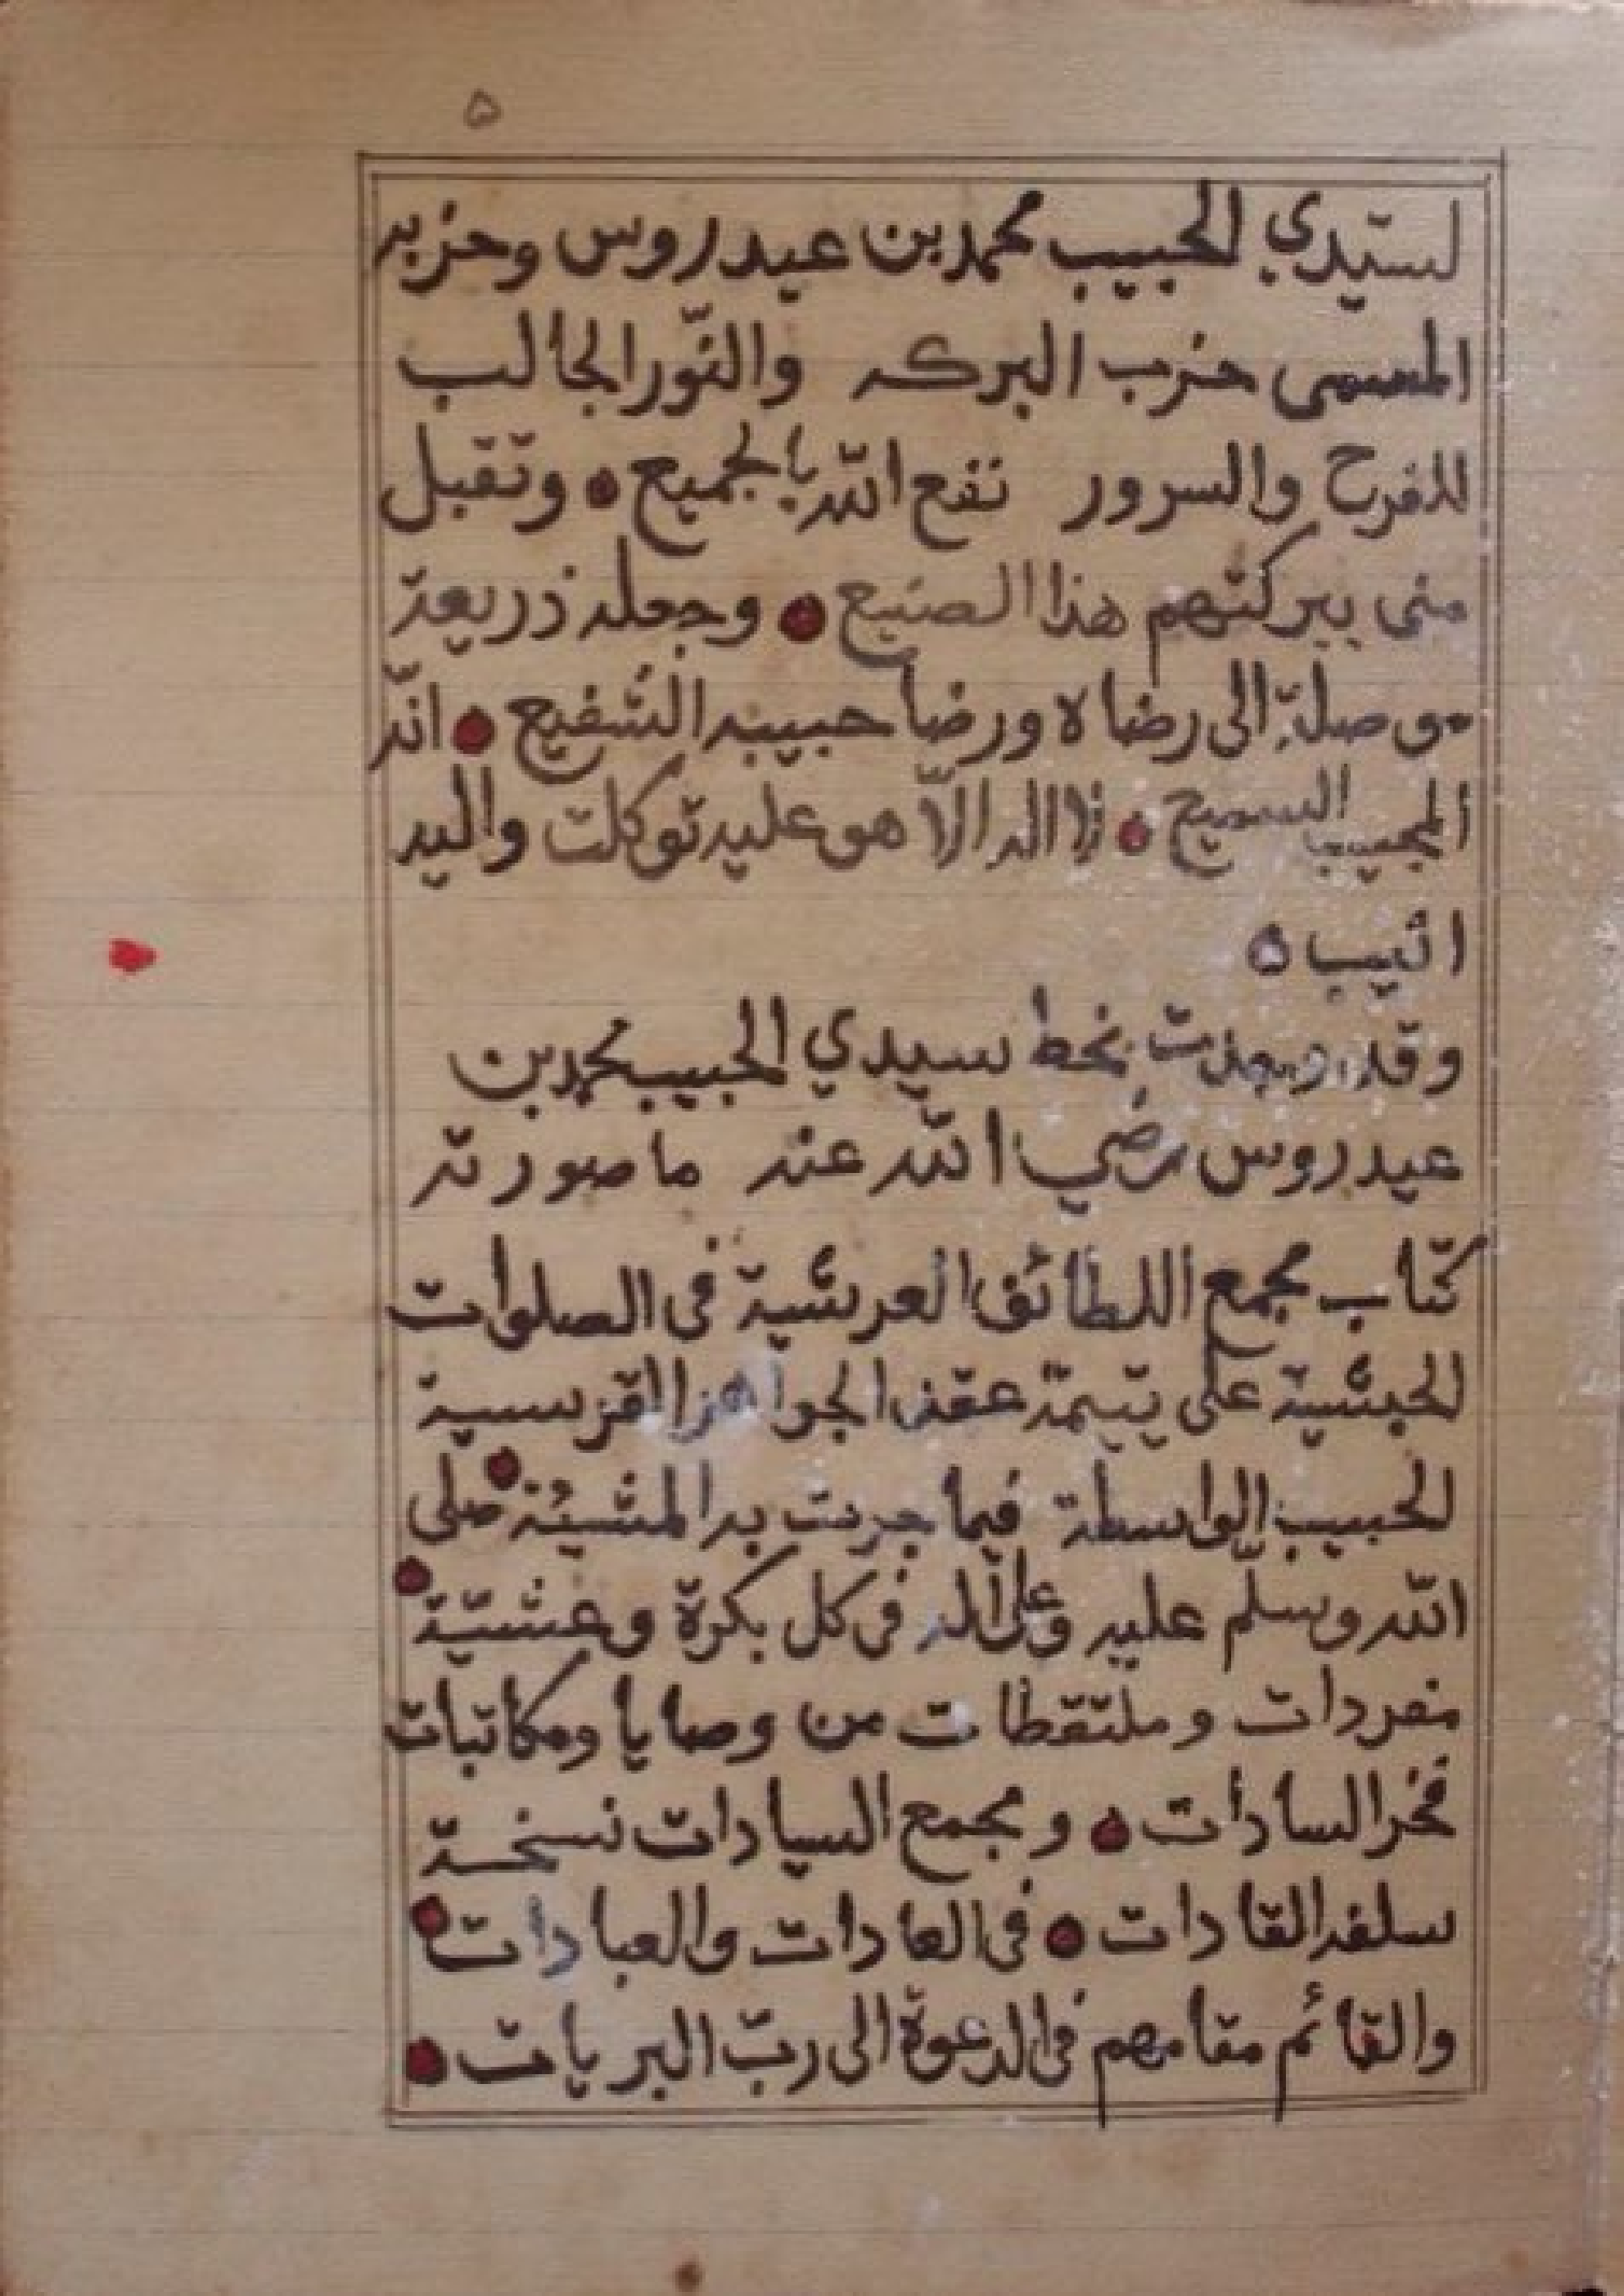 ٥
لسيّدي الحبيب محمد بن عيدروس وحزبه
المسمى حزب البركه والنّور الجالب
للفرح والسرور نفع الله بالجميع ● وتقبل
منى ببركتهم هذا الصنيع ● وجعله ذريعة
موصلة الى رضاه ورضا حبيبه الشفيع ● انّه
المجيب السميع ● لا اله الاّ هو عليه توكلت واليه
انيب ٥
وقد وجدت بخط سيدي الحبيب محمد بن
عيدروس رضي الله عنه ما صورته
كتاب مجمع اللطائف العرشية فى الصلوات
الحبشية على يتيمة عقد الجواهر القدسية
الحبيب الواسطة فيما جرت به المشيئة ● صلى
الله وسلّم عليه وعلى آله فى كل بكرة وعشيّة ●
مفردات وملتقطات من وصايا ومكاتبات
فخر السادات ● ومجمع السيادات نسخة
سلفه القادات ● فى العادات والعبادات ●
والقائم مقامهم فى الدعوة الى ربّ البريات ●